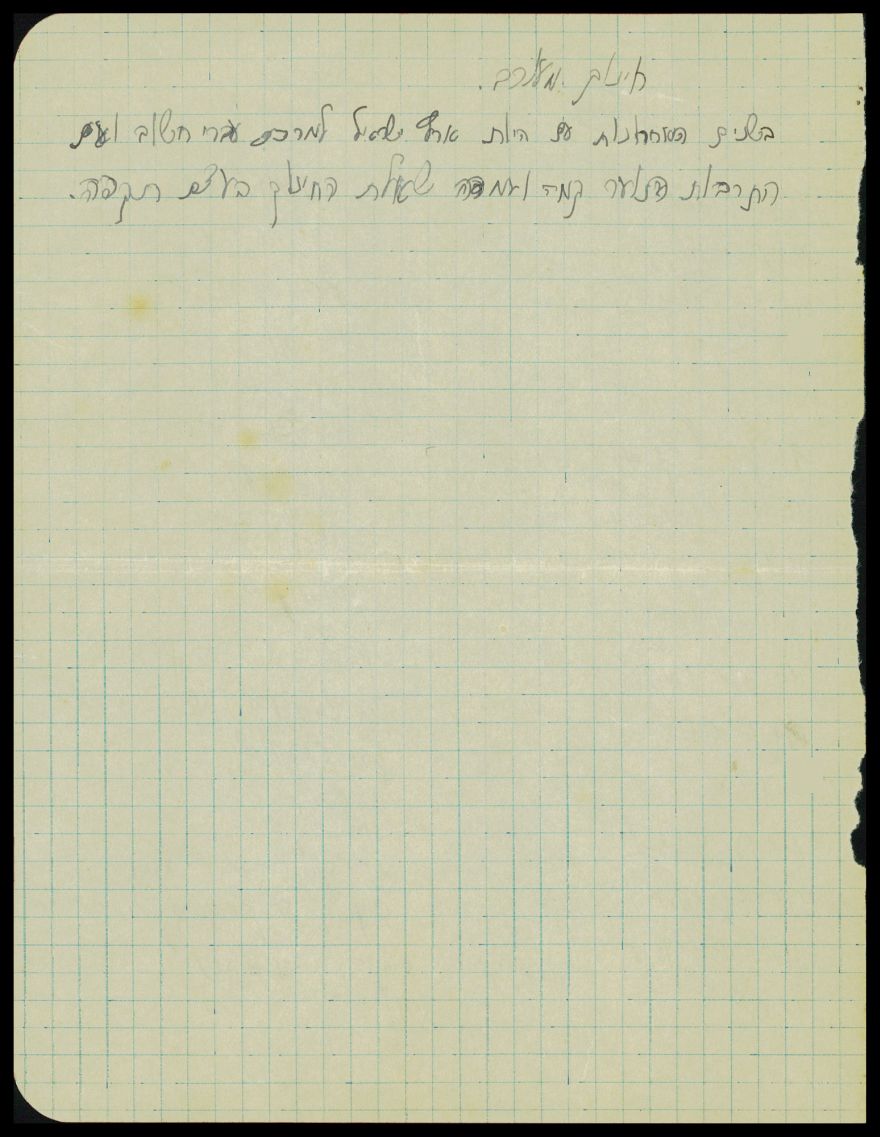 חינוך מעורב.
בשנים האחרונות עם היות ארץ ישראל למרכז עברי חשוב ועם
התרבות הנוער קמה ועמדה שאלת החינוך בעצם תקפה.